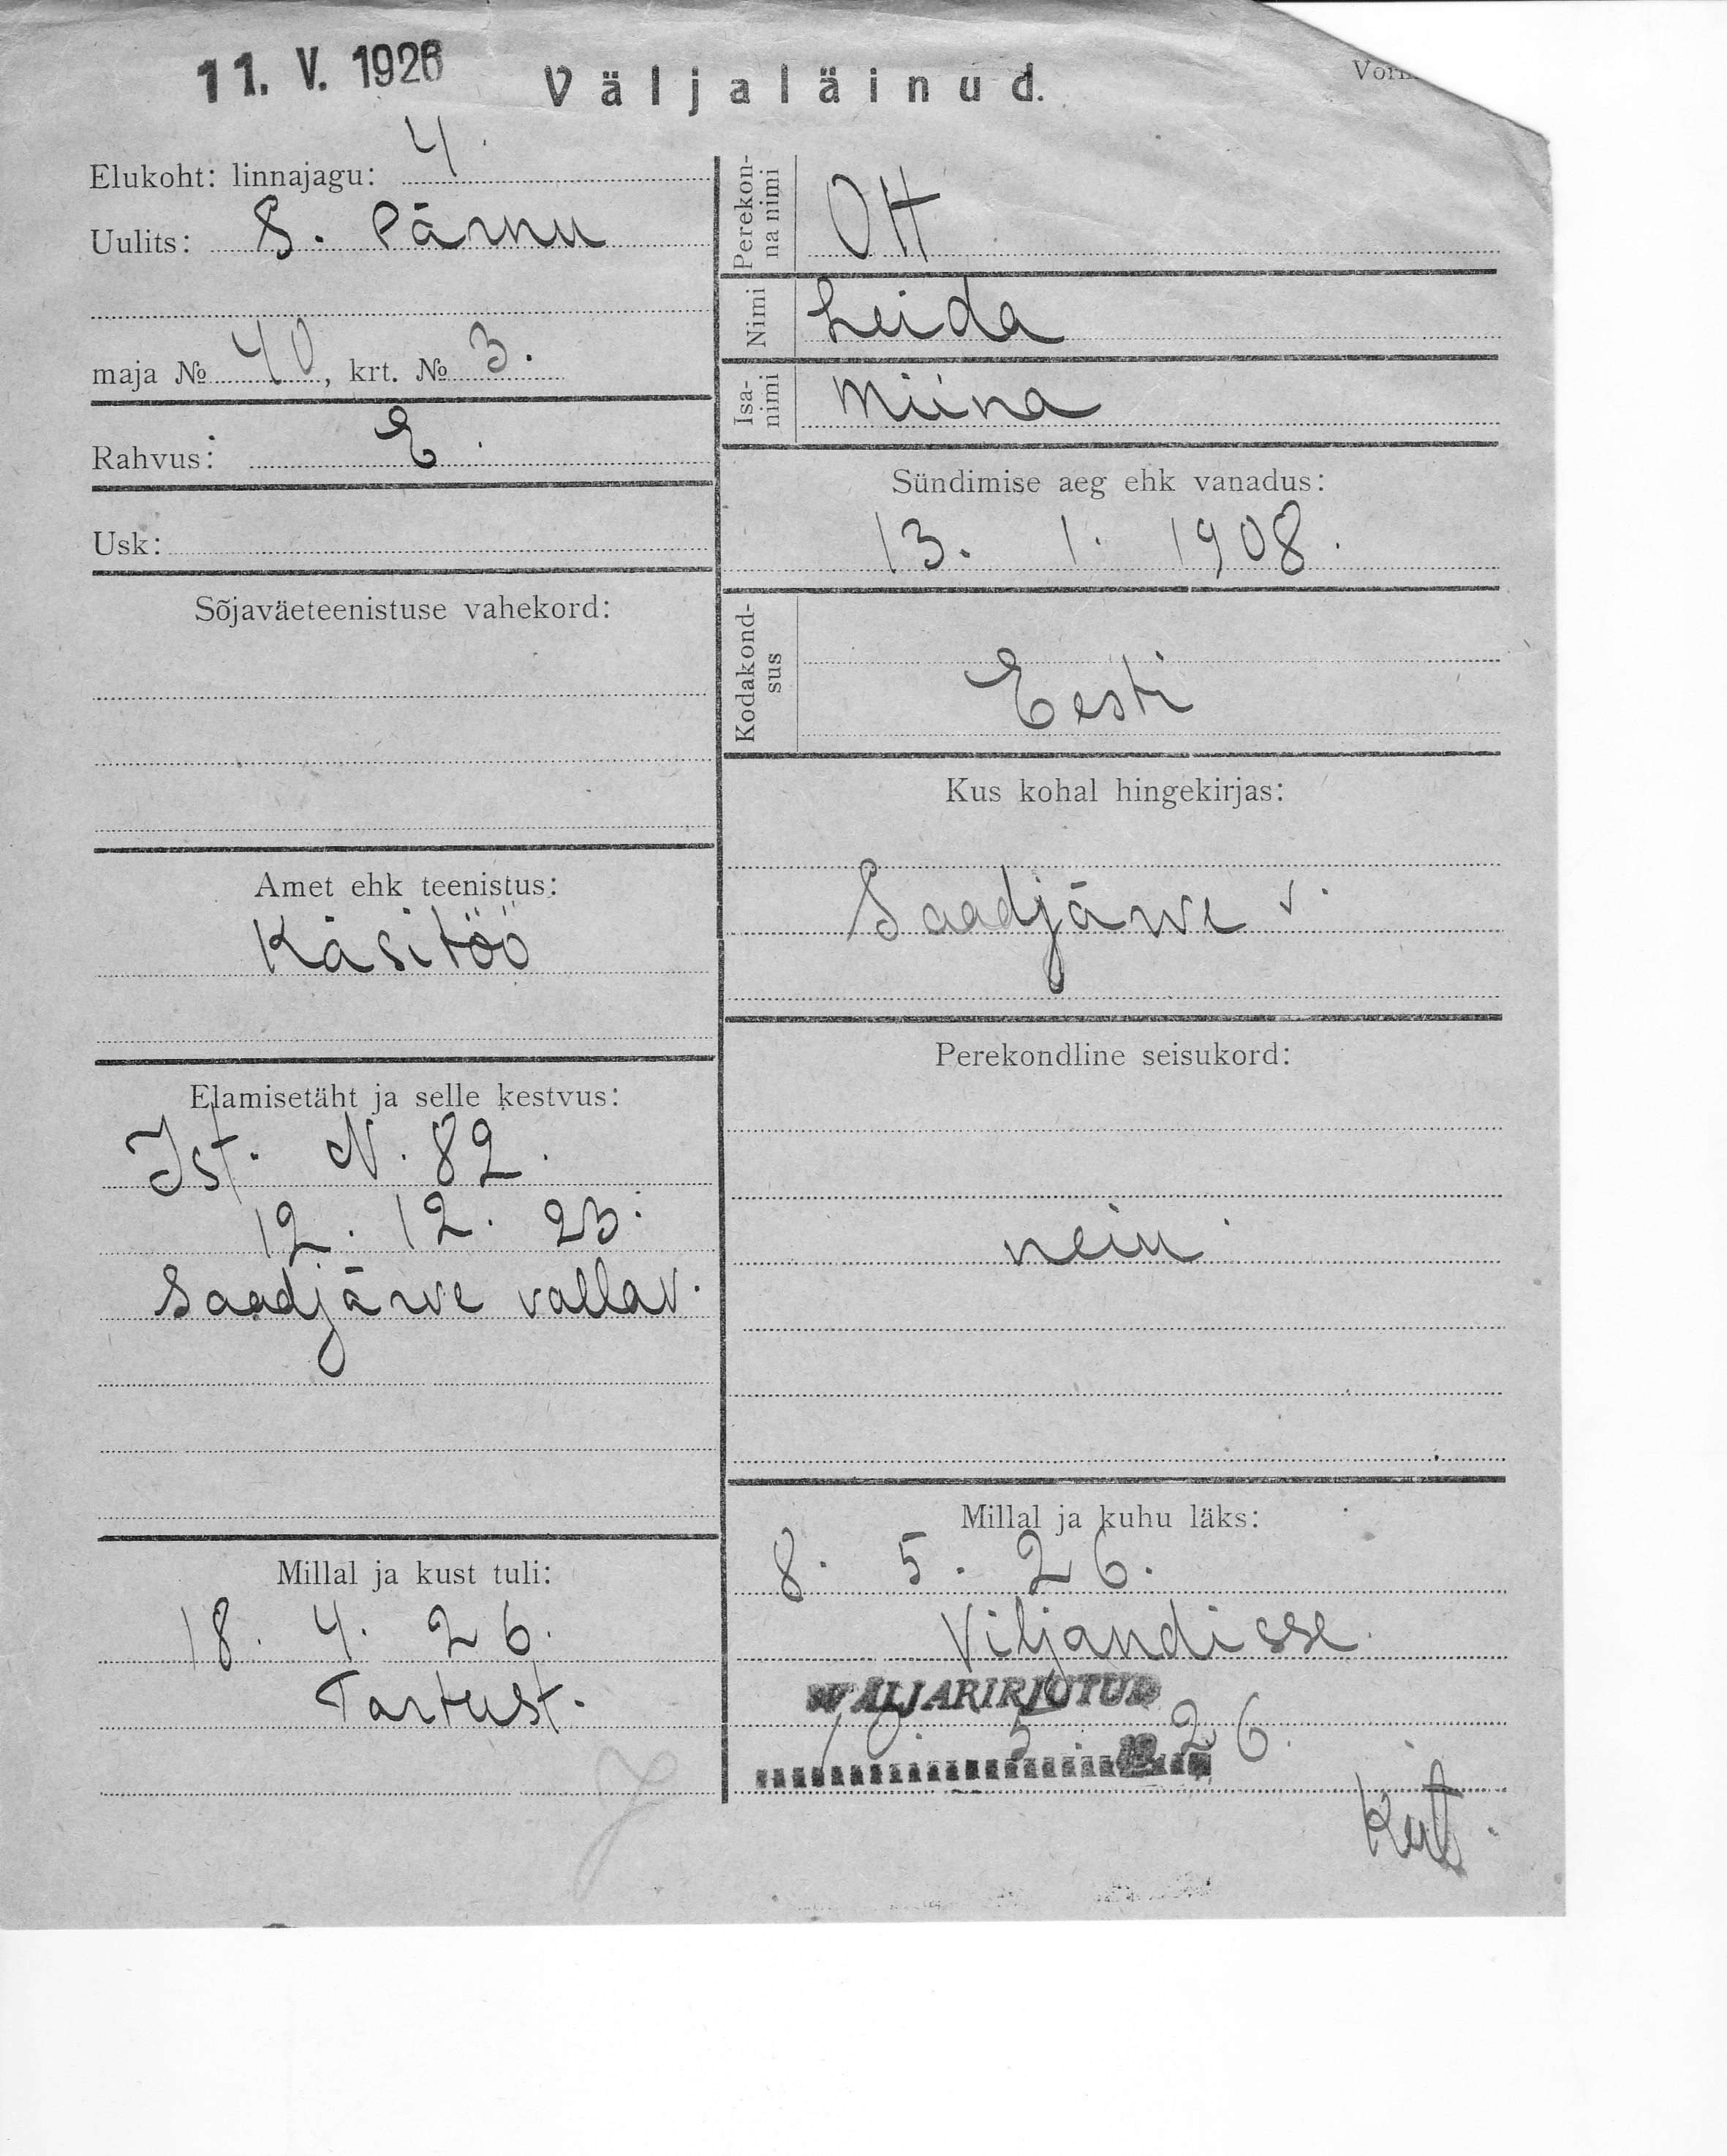 11. V. 1926
Väljaläinud.
Elukoht: linnajagu: 4.
Uulits: S. Pärnu
maja № 40, krt. № 3.
Rahvus: E.
Usk:
Sõjaväeteenistuse vahekord:
Amet ehk teenistus:
Käsitöö
Elamisetäht ja selle kestvus:
Ist. N. 82.
12. 12. 23.
Saadjärve vallav.
Millal ja kust tuli:
18. 4. 26.
Tartust.
Perekon-
na nimi
Ott
Nimi Leida
Isa-
nimi
Miina
Sündimise aeg ehk vanadus:
13. 1. 1908.
Kodakond-
sus
Eesti
Kus kohal hingekirjas:
Saadjärve v.
Perekondline seisukord:
neiu
Millal ja kuhu läks:
8. 5. 26.
Viljandisse.
WÄLJAKIRJOTUD
10. 5. 26.